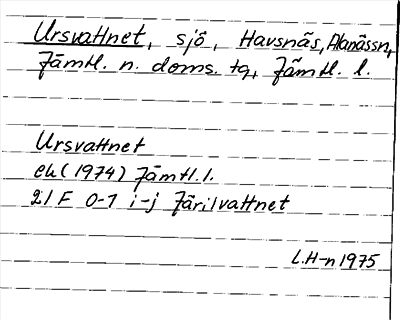 Ursvattnet, sjö, Havsnäs, Alanässn,
Jämtl. n. doms. tg, Jämtl. l.
Ursvattnet
ek (1974) Jämtl. l.
21 F 0-1 i-j Järilvattnet
L.H-n 1975